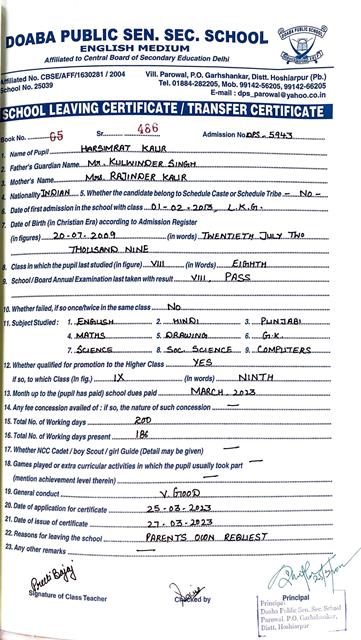 DOABA PUBLIC SEN. SEC. SCHOOL
ENGLISH MEDIUM
Affiliated to Central Board of Secondary Education Delhi
Affiliated No. CBSE/AFF/1630281 / 2004
School No. 25039
Vill. Parowal, P.O. Garhshankar, Distt. Hoshiarpur (Pb.)
Tel. 01884-282205, Mob. 99142-56205, 99142-66205
E-mail : dps_parowal@yahoo.co.in
SCHOOL LEAVING CERTIFICATE / TRANSFER CERTIFICATE
Book No. 05 Sr. 486 Admission No. DPS-5943
1. Name of Pupil HARSIMRAT KAUR
2. Father's Guardian Name MR. KULWINDER SINGH
3. Mother's Name MRS. RAJINDER KAUR
4. Nationality INDIAN 5. Whether the candidate belong to Schedule Caste or Schedule Tribe - NO -
6. Date of first admission in the school with class 01-02-2013, L.K.G.
7. Date of Birth (in Christian Era) according to Admission Register
(in figures) 20-07-2009 (in words) TWENTIETH JULY TWO
THOUSAND NINE
8. Class in which the pupil last studied (in figure) VIII (in Words) EIGHTH
9. School / Board Annual Examination last taken with result VIII, PASS
10. Whether failed, if so once/twice in the same class NO
11. Subject Studied : 1. ENGLISH 2. HINDI 3. PUNJABI
4. MATHS 5. DRAWING 6. G.K.
7. SCIENCE 8. SOC. SCIENCE 9. COMPUTERS
12. Whether qualified for promotion to the Higher Class YES
if so, to which Class (in fig.) IX (in Words) NINTH
13. Month up to the (pupil has paid) school dues paid MARCH, 2023
14. Any fee concession availed of : if so, the nature of such concession —
15. Total No. of Working days 200
16. Total No. of Working days present 186
17. Whether NCC Cadet / boy Scout / girl Guide (Detail may be given) —
18. Games played or extra curricular activities in which the pupil usually took part —
(mention achievement level therein) —
19. General conduct V. GOOD
20. Date of application for certificate 25-03-2023
21. Date of issue of certificate 27-03-2023
22. Reasons for leaving the school PARENTS OWN REQUEST
23. Any other remarks —
Preeti Bajaj
Signature of Class Teacher Checked by Principal
Principal
Doaba Public Sen. Sec. School
Parowal, P.O. Garhshankar,
Distt. Hoshiarpur